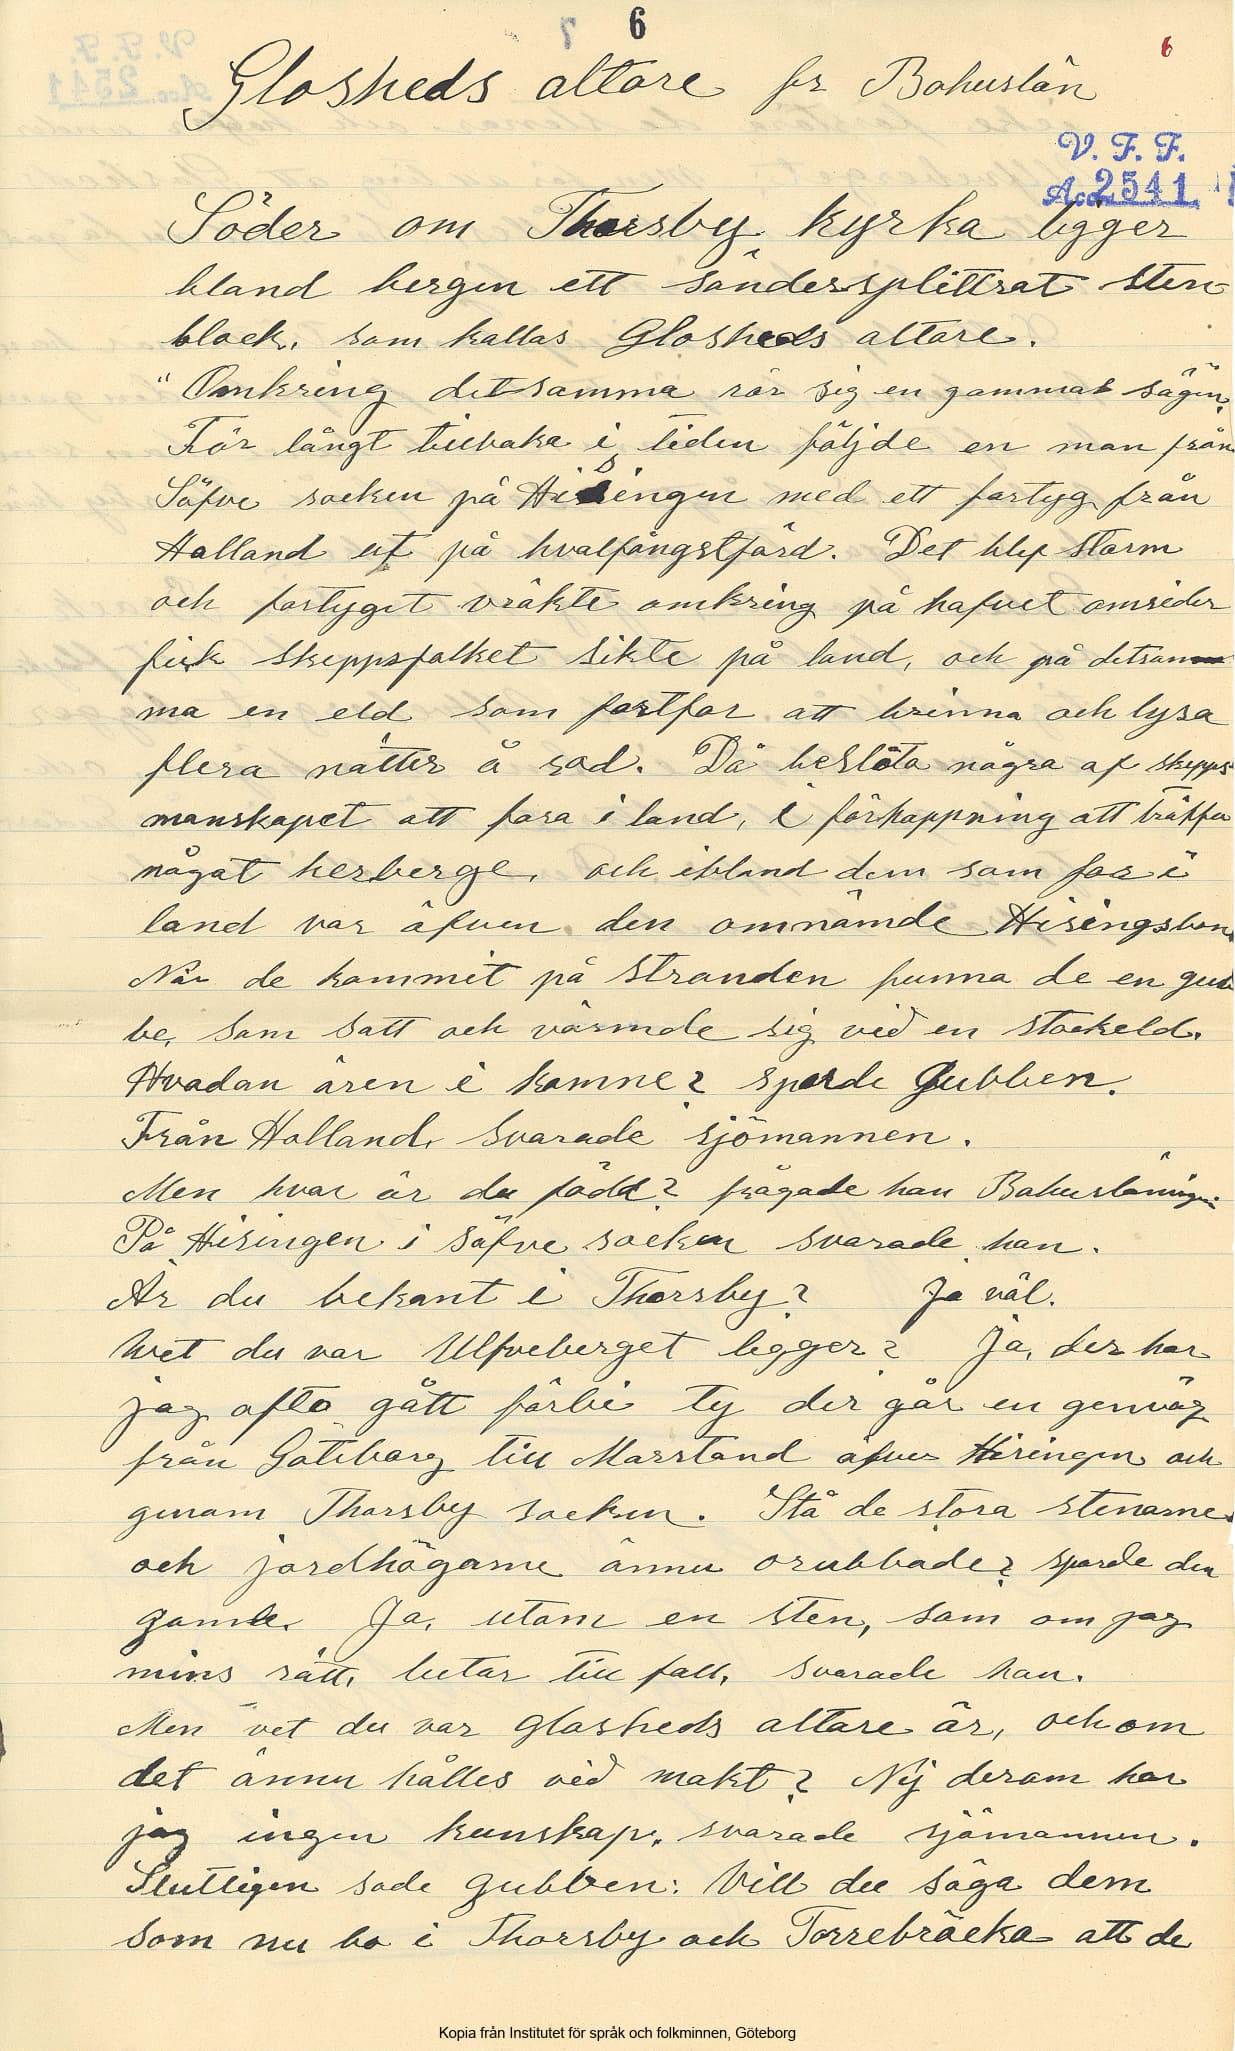 6
6
Glosheds altare fr Bohuslän
V. F. F.
Acc. 2541
Söder om Thorsby kyrka ligger
bland bergen ett söndersplittrat sten
block, som kallas Glosheds altare.
"Omkring detsamma rör sig en gammal sägen.
För långt tillbaka i tiden följde en man från
Säfve socken på Hisingen med ett fartyg från
Halland ut på hvalfångstfärd. Det blef storm
och fartyget vräkte omkring på hafvet omsider
fick skeppsfolket sikte på land, och på detsam
ma en eld som fortfor att brinna och lysa
flera nätter å rad. Då beslöto några af skepps
manskapet att fara i land, i förhoppning att träffa
något herberge, och ibland dem som for i
land var äfven den omnämde Hisingsbon
När de kommit på stranden funna de en gub
be, som satt och värmde sig vid en stockeld.
Hvadan ären i komne? sporde Gubben.
Från Holland, svarade sjömannen.
Men hvar är du född? frågade han Bohuslänингen.
På Hisingen i Säfve socken svarade han.
Är du bekant i Thorsby? Ja väl.
Wet du var Ulfveberget ligger? Ja, der har
jag ofta gått förbi ty der går en genväg
från Göteborg till Marstand öfver Hisingen och
genom Thorsby socken. Stå de stora stenarne
och jordhögarne ännu orubbade? sporde den
gamle. Ja, utom en sten, som om jag
mins rätt, lutar till fall, svarade han.
Men vet du var Glosheds altare är, och om
det ännu hålles vid makt? Nej derom har
jag ingen kunskap, svarade sjömannen.
Slutligen sade gubben: Vill du säga dem
som nu bo i Thorsby och Torrebräcka att de
Kopia från Institutet för språk och folkminnen, Göteborg